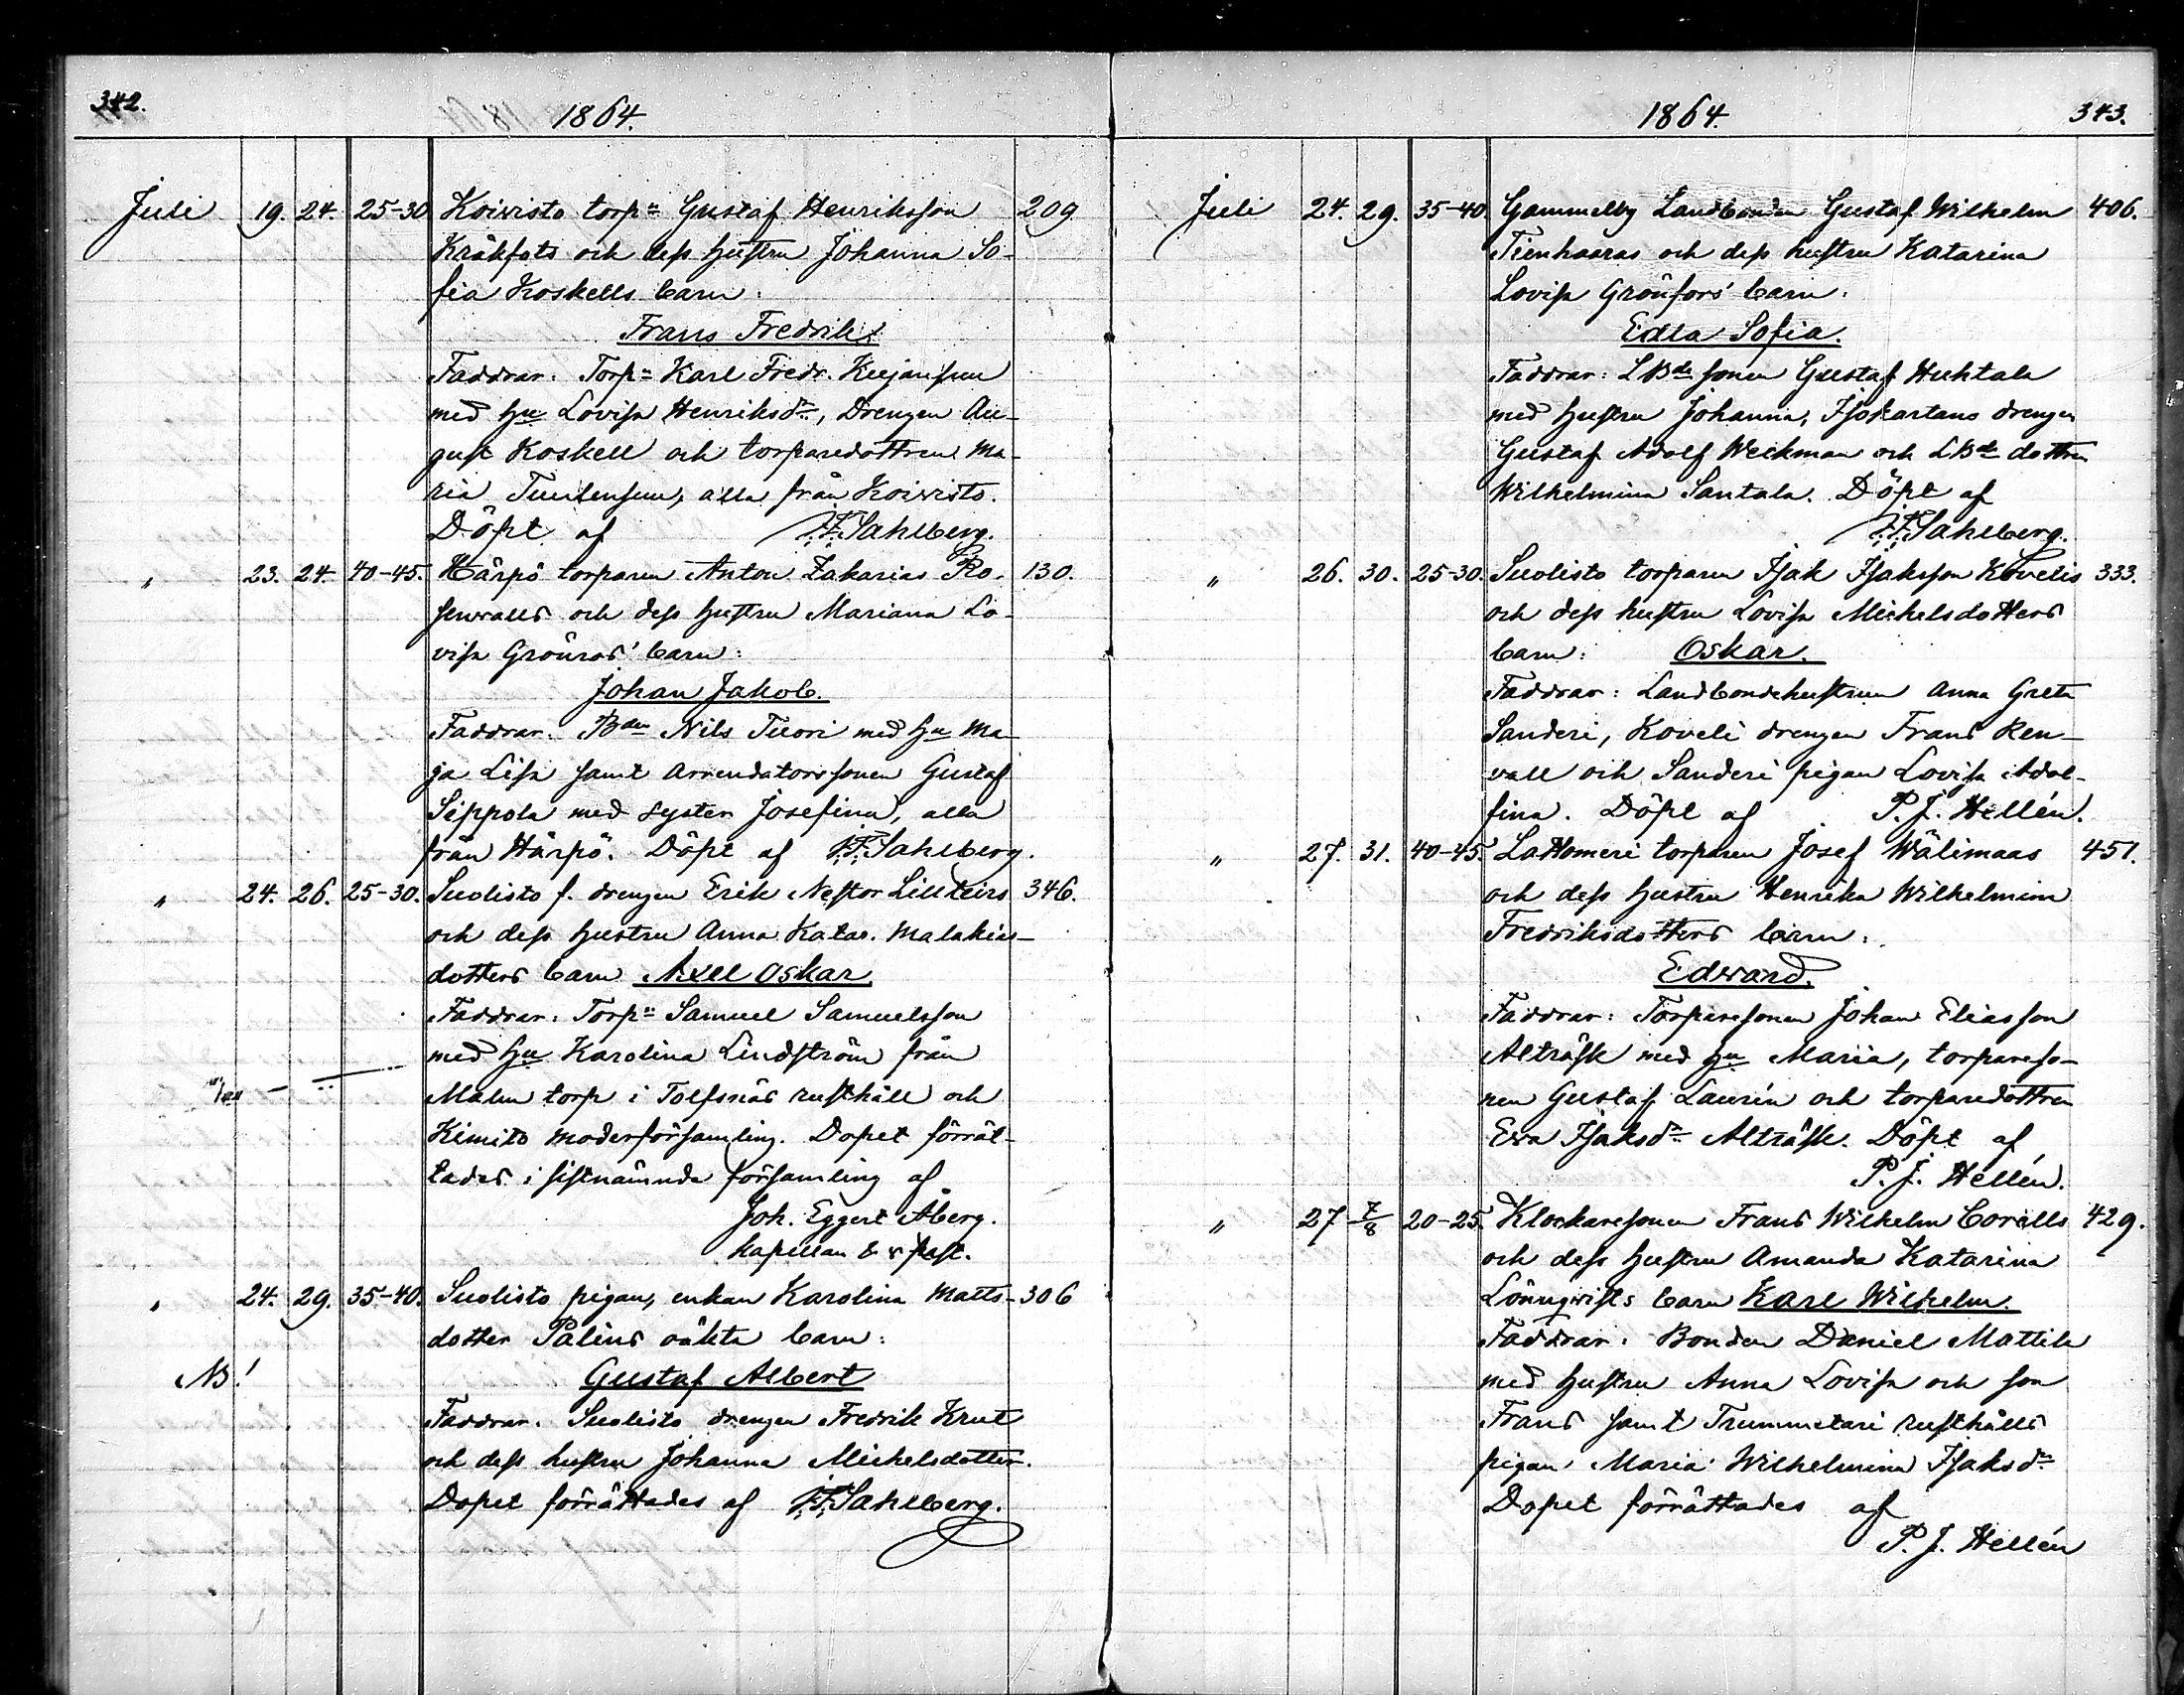 342.
1864.
Juli 19. 24. 25-30 Koivisto torpn Gustaf Henriksson 209
Kråkfots och dess hustru Johanna So-
fia Koskells barn:
Frans Fredrik
Faddrar: Torpn Karl Fredr.
med hu Lovisa Henriksdr, Drengen Au-
gust Koskell och torparedottren Ma-
ria alla från Koivisto.
Döpt af F. F. Sahlberg.
" 23. 24. 40-45. Härpö torparen Anton Zakarias Ro- 130.
senvalls och dess hustru Mariana Lo-
visa Grönros' barn:
Johan Jakob.
Faddrar: Bden Nils Tuori med hu Ma-
ja Lisa samt Arrendatorssonen Gustaf
Sippola med syster Josefina, alla
från Härpö. Döpt af F. F. Sahlberg.
" 24. 26. 25-30. Suolisto f. drengen Erik Nestor 346.
och dess hustru Anna Katar. Malakias-
dotters barn Axel Oskar.
Faddrar: Torpn Samuel Samuelsson
med hu Karolina Lindström från
Malm torp i Tolfsnäs rusthåll och
Kimito moderförsamling. Dopet förrät-
tades i sistnämnda församling af
Joh. Eggert Åberg.
kapellan & v past.
" 24. 29. 35-40. Suolisto pigan, enkan Karolina Matts- 306
dotter Palins oäkta barn:
NB! Gustaf Albert
Faddrar: Suolisto drengen Fredrik Krut
och dess hustru Johanna Michelsdotter.
Dopet förrättades af F. F. Sahlberg.
1864. 343.
Juli 24. 29. 35-40. Gammelby Landbonden Gustaf Wilhelm 406.
Tienhaaras och dess hustru Katarina
Lovisa Grönfors' barn:
Edla Sofia.
Faddrar: LBde sonen Gustaf Huhtala
med hustru Johanna, Isokartano drengen
Gustaf Adolf Weckman och LBde dottren
Wilhelmina Santala. Döpt af
F. F. Sahlberg.
" 26. 30. 25-30. Suolisto torparen Isak Isaksson Kovelis 333.
och dess hustru Lovisa Michelsdotters
barn: Oskar.
Faddrar: Landbondehustrun Anna Greta
Sanderi, Koveli drengen Frans Ren-
vall och Sanderi pigan Lovisa Adol-
fina. Döpt af P. J. Hellén.
" 27. 31. 40-45. Lattomeri torparen Josef Wälimaas 451.
och dess hustru Henrika Wilhelmina
Fredriksdotters barn:
Edward.
Faddrar: Torparesonen Johan Eliasson
Alträsk med hu Maria, torpareso-
nen Gustaf Laurén och torparedottren
Eva Isaksdr Alträsk. Döpt af
P. J. Hellén.
" 27 7/8 20-25. Klockaresonen Frans Wilhelm Corells 429.
och dess hustru Amanda Katarina
Lönnqvists barn Karl Wilhelm.
Faddrar: Bonden Daniel Mattila
med hustru Anna Lovisa och son
Frans samt Trummetari rusthålls
pigan Maria Wilhelmina Isaksdr
Dopet förrättades af
P. J. Hellén